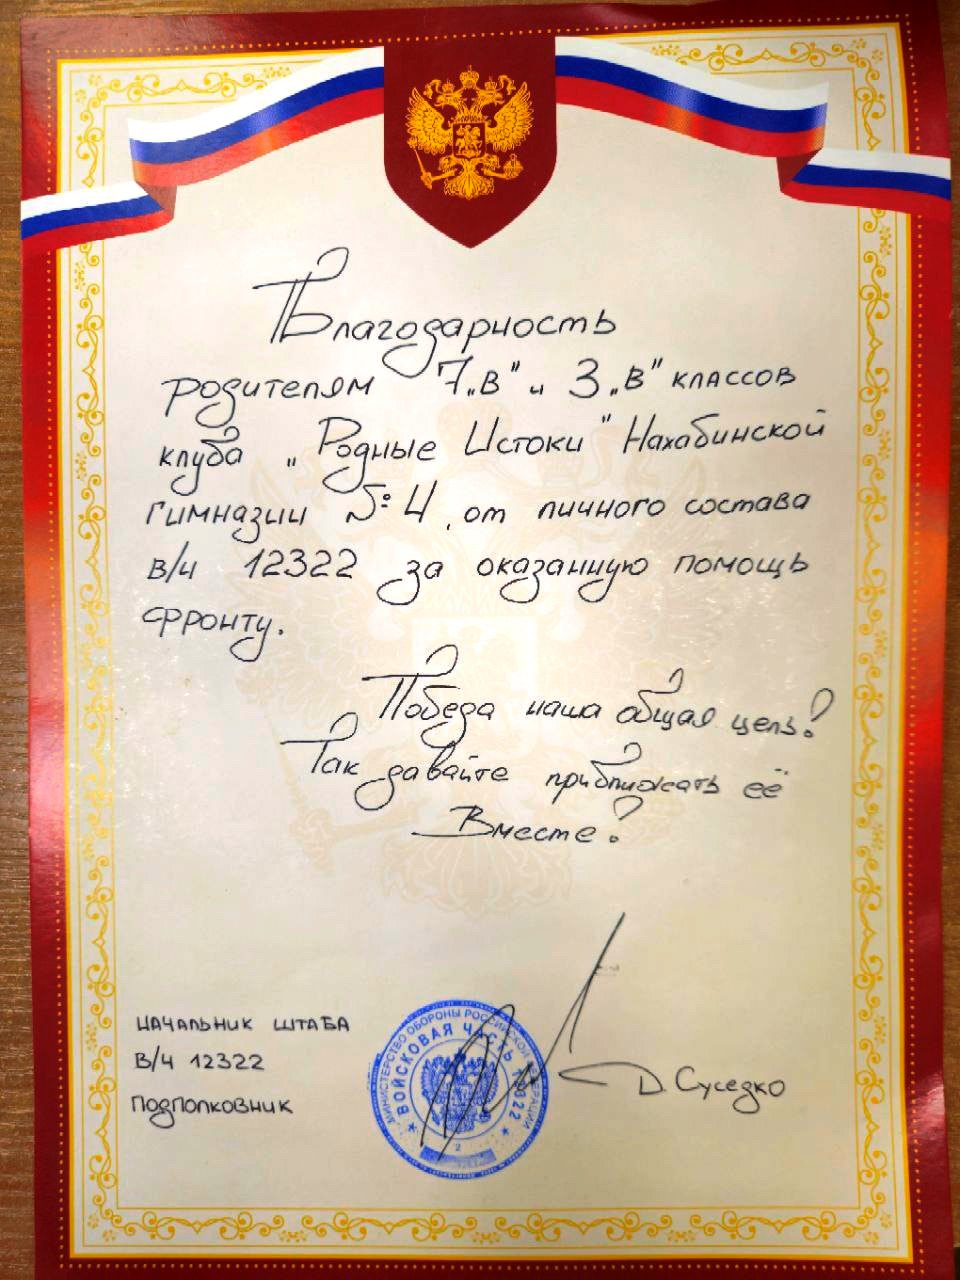 Благодарность
родителям 7 „В" и 3 „В" классов
клуба „Родные Истоки" Нахабинской
гимназии №4, от личного состава
в/ч 12322 за оказанную помощь
фронту.
Победа наша общая цель!
Так давайте приближать её
Вместе!
Начальник штаба
В/Ч 12322
Подполковник
Д Суседко
МИНИСТЕРСТВО ОБОРОНЫ РОССИЙСКОЙ ФЕДЕРАЦИИ
ВОЙСКОВАЯ ЧАСТЬ 12322
2